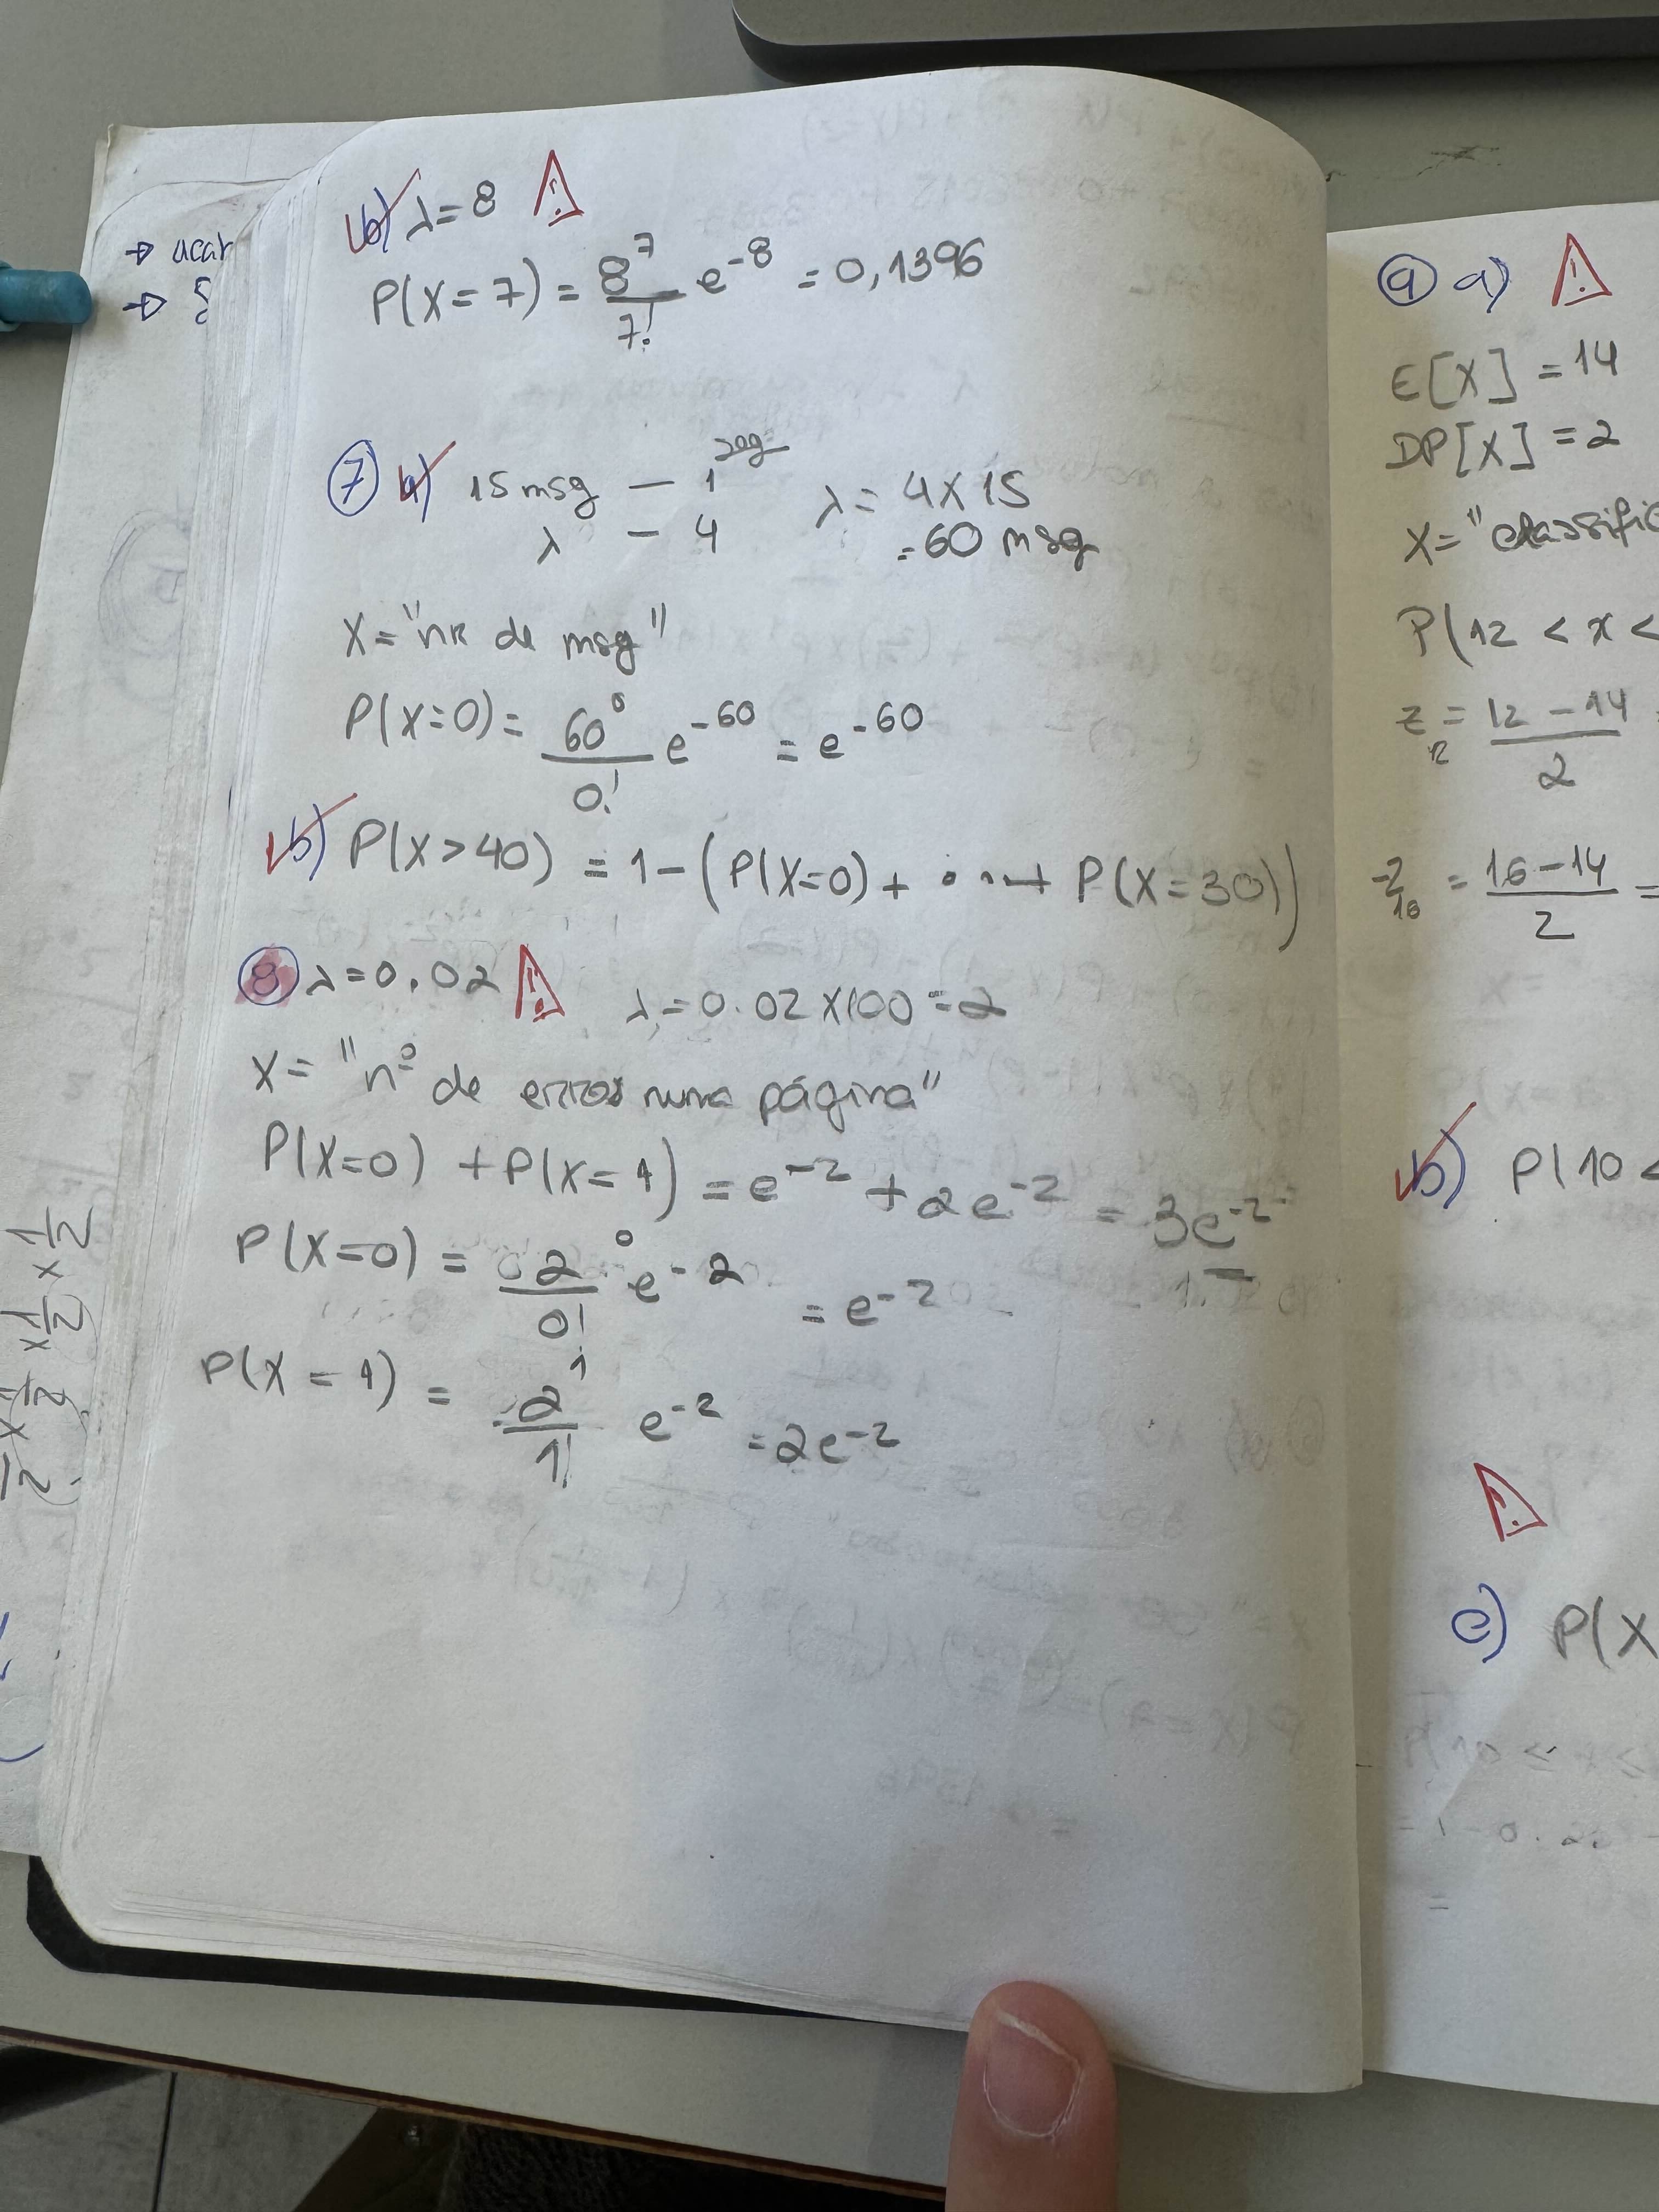 → ucar
→
b) λ=8 ⚠
P(X=7) = 8⁷/7! e⁻⁸ = 0,1396
⑦ a) 15 msg — 1 seg λ = 4×15
λ — 4 = 60 msg
X = "nr de msg"
P(X=0) = 60⁰/0! e⁻⁶⁰ = e⁻⁶⁰
b) P(X>40) = 1-(P(X=0)+ ...+ P(X=30))
⑧ λ=0.02 ⚠ λ=0.02×100=2
X = "nº de erros numa página"
P(X=0) + P(X=1) = e⁻² + 2e⁻² = 3e⁻²
P(X=0) = 2⁰/0! e⁻² = e⁻²
P(X=1) = 2¹/1! e⁻² = 2e⁻²
× 1/2 × 1/2
⑨ a) ⚠
E[X] = 14
DP[X] = 2
X = "classific
P(12 < x <
z₁₂ = (12-14)/2 =
z₁₆ = (16-14)/2 =
b) P(10 <
⚠
c) P(X